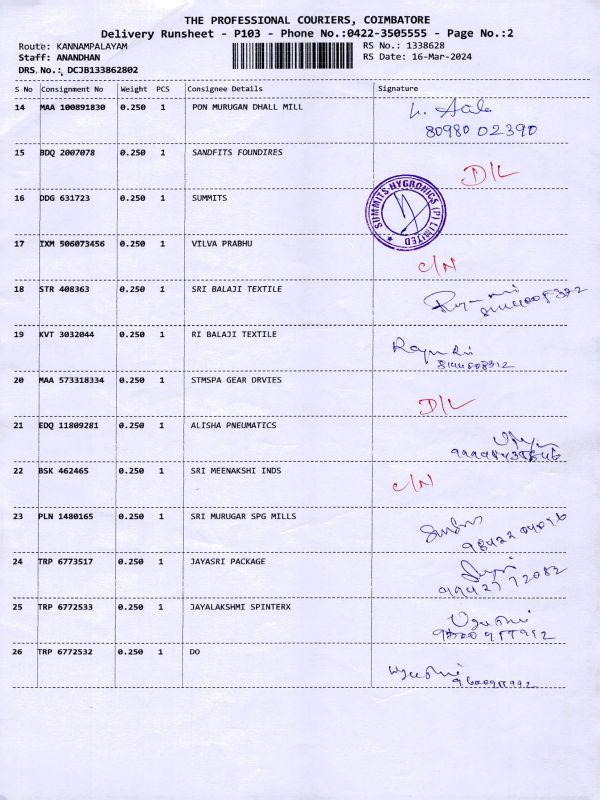 THE PROFESSIONAL COURIERS, COIMBATORE
Delivery Runsheet - P103 - Phone No.:0422-3505555 - Page No.:2
Route: KANNAMPALAYAM RS No.: 1338628
Staff: ANANDHAN RS Date: 16-Mar-2024
DRS. No.: DCJB133862802
S No Consignment No Weight PCS Consignee Details Signature
14 MAA 100891830 0.250 1 PON MURUGAN DHALL MILL
80980 02390
15 BDQ 2007078 0.250 1 SANDFITS FOUNDIRES
D/L
16 DDG 631723 0.250 1 SUMMITS
SUMMITS HYGRONICS (P) LIMITED
17 IXM 506073456 0.250 1 VILVA PRABHU
C/N
18 STR 408363 0.250 1 SRI BALAJI TEXTILE
19 KVT 3032044 0.250 1 RI BALAJI TEXTILE
20 MAA 573318334 0.250 1 STMSPA GEAR DRVIES
D/L
21 EDQ 11809281 0.250 1 ALISHA PNEUMATICS
22 BSK 462465 0.250 1 SRI MEENAKSHI INDS
C/N
23 PLN 1480165 0.250 1 SRI MURUGAR SPG MILLS
24 TRP 6773517 0.250 1 JAYASRI PACKAGE
99427 72082
25 TRP 6772533 0.250 1 JAYALAKSHMI SPINTERX
26 TRP 6772532 0.250 1 DO